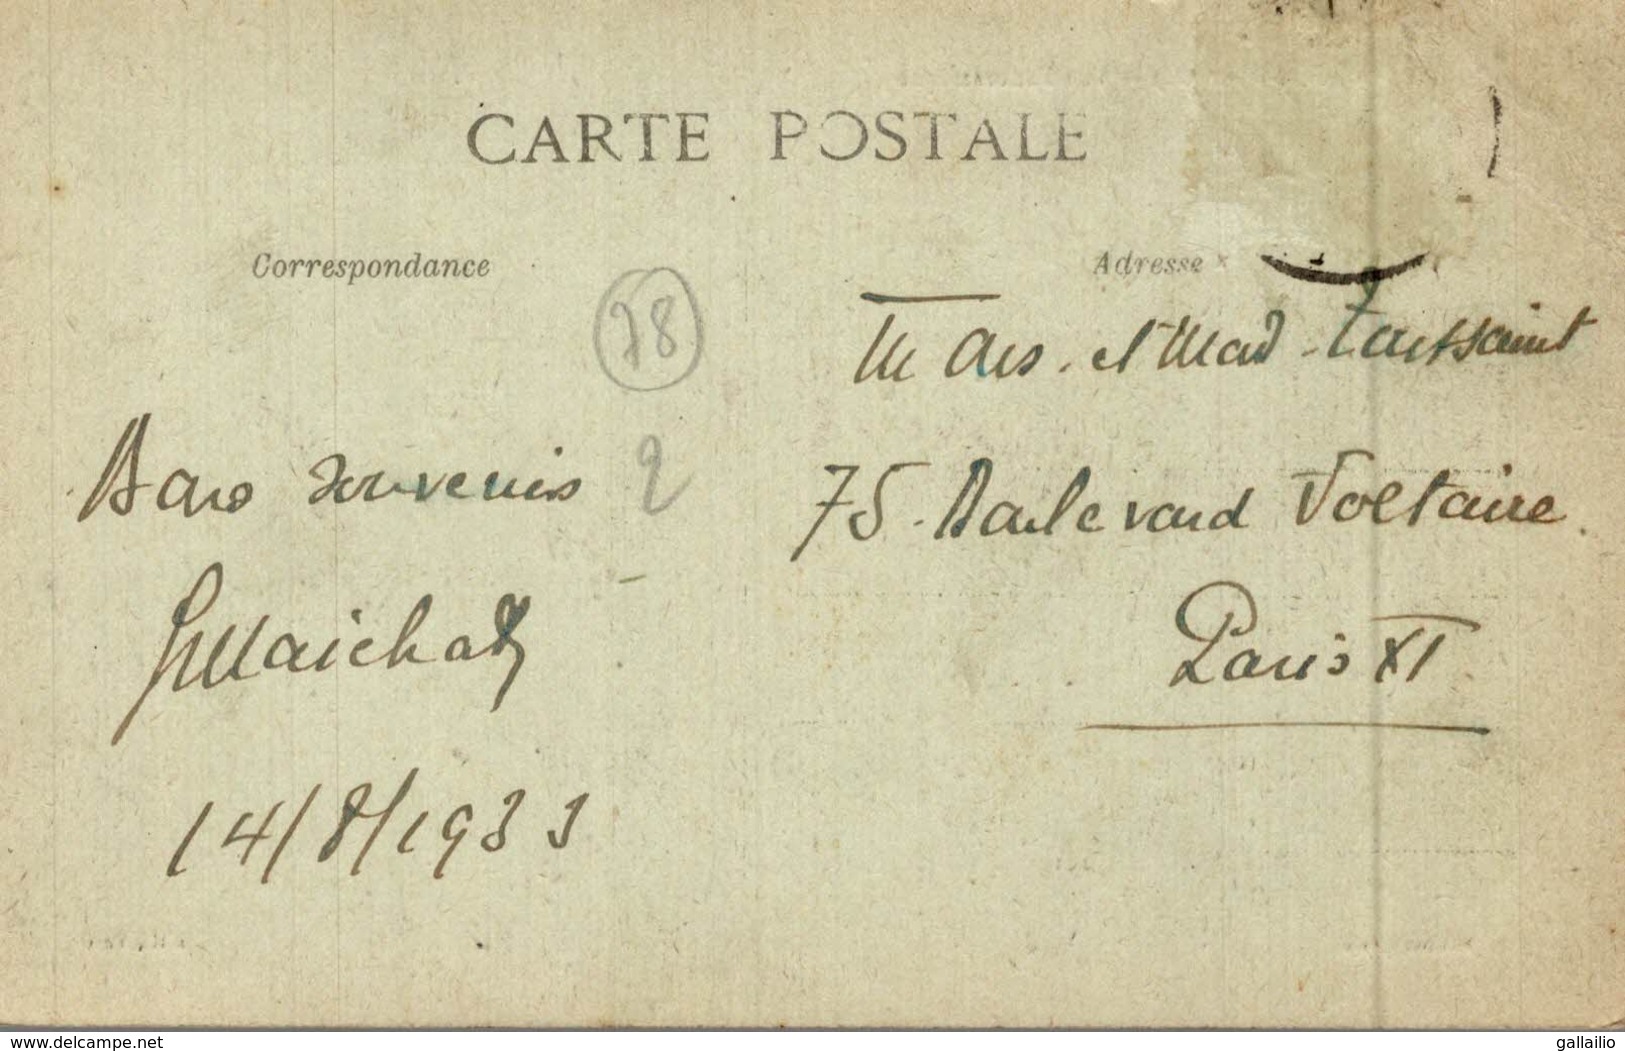 CARTE POSTALE
Correspondance
Adresse
78
et Mad. Toussaint
Bons souvenirs
2
75. Boulevard Voltaire
Paris XI
14/8/1933
www.delcampe.net
gallailio